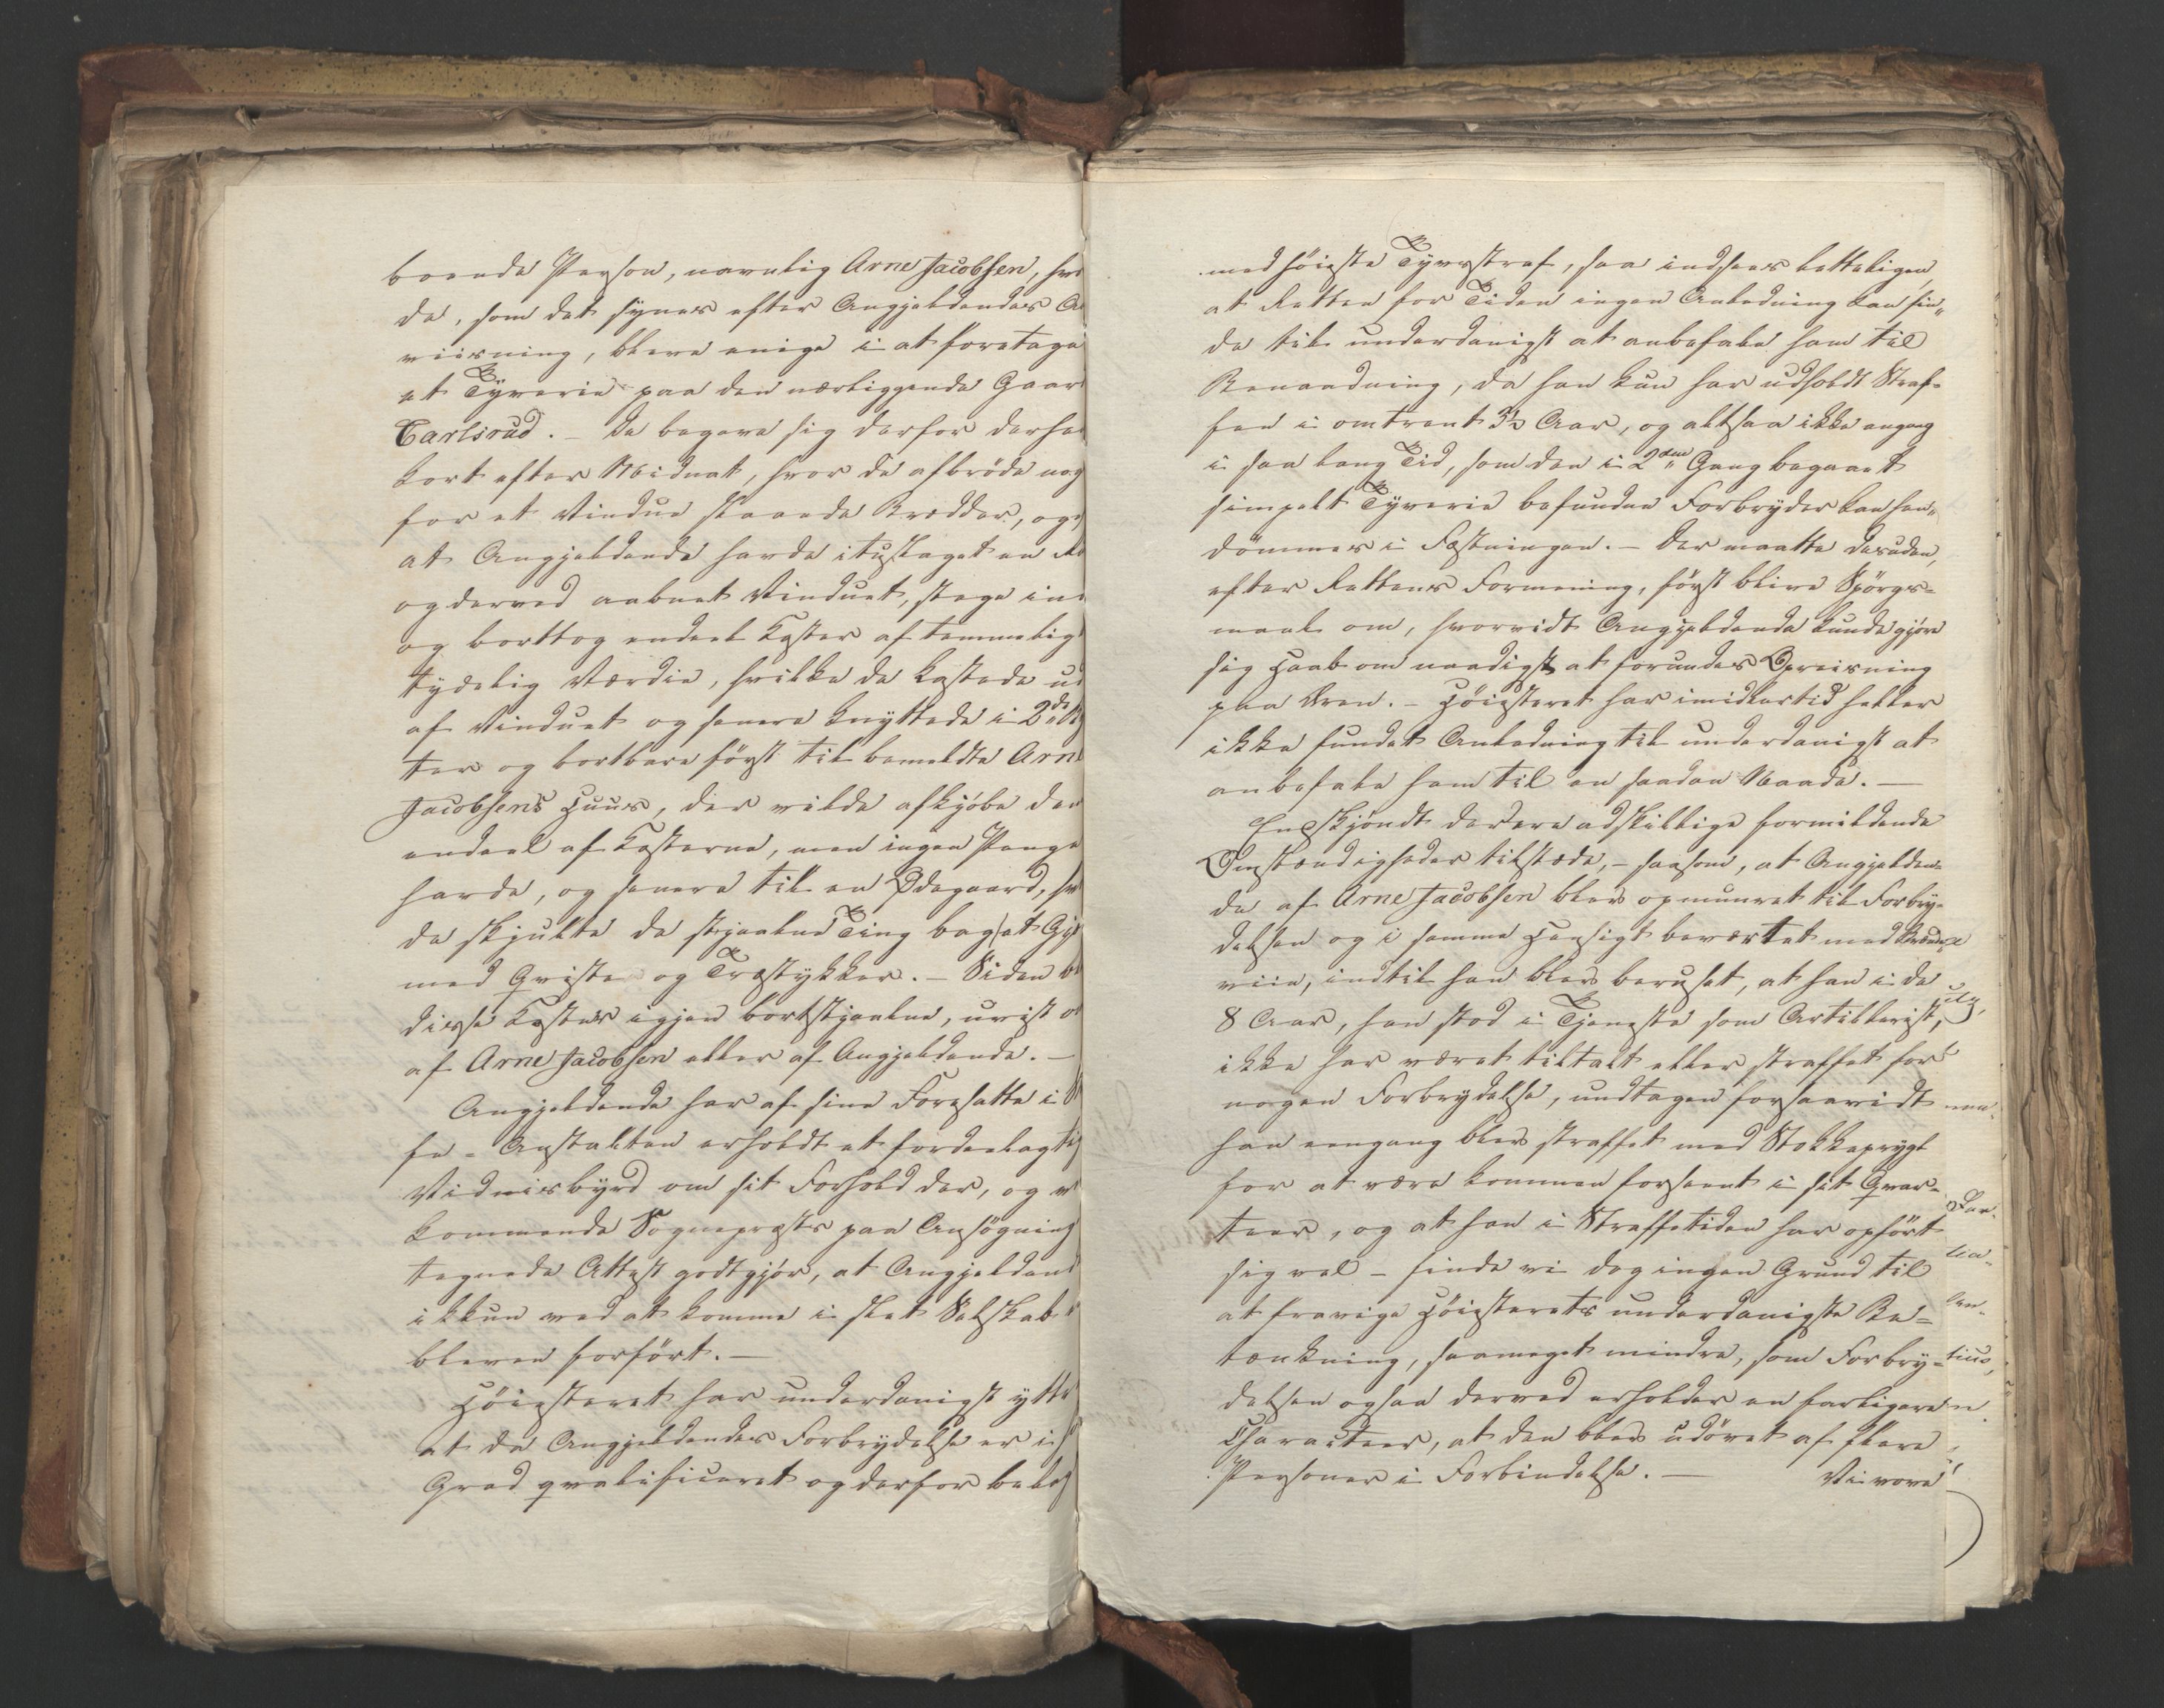 boende Person, navnlig Arne Jacobsen, hvo
de, som det synes efter Angjeldendes A
viisning, bleve enige i at foretage
et Tyverie paa den nærliggende Gaar
Carlsrud. – De begave sig derfor derhe
kort efter Midnat, hvor de afbröde nog
for et Vindue staaende Brædder, og
at Angjeldende havde ituslaget en Ru
og derved aabnet Vinduet, stege ind
og borttog endeel Koster af temmelig
tydelig Værdie, hvilke de kastede ud
af Vinduet og senere knyttede i 2de Kn
ter og bortbare först til bemeldte Arne
Jacobsens Huus, der vilde afkjöbe dem
endeel af Kosterne, men ingen Penge
havde, og senere til en Ødegaard, hvor
de skjulte de stjaalne Ting bag et Gj
med Qviste og Træstykker. – Siden bl
disse Koster igjen bortstjaalne, uvist om
af Arne Jacobsen eller af Angjeldende. –
Angjeldende har af sine Foresatte i S
fe-Anstalten erholdt et fordeelagtig
Vidnisbyrd om sit Forhold der, og v
kommende Sognepræsts paa Ansøgning
tegnede Attest godtgjör, at Angjeldend
ikkun ved at komme i slet Selskab
bleven forfört. –
Höiesteret har underdanigst yttr
at da Angjeldendes Forbrydelse er i h
Grad qvalificeret og derfor beleg
med höieste Tyvsstraf, saa indsees letteligen,
at Retten for Tiden ingen Anledning kan fin„
de til underdanigst at anbefale ham til
Benaadning, da han kun har udholdt Straf-
fen i omtrent 3½ Aar, og altsaa ikke engang
i saa lang Tid, som den i 2den Gang begaaet
simpelt Tyverie befundne Forbryder kan hen„
dömmes i Fæstningen. – Der maatte desuden,
efter Rettens Formening, först blive Spörgs-
maal om, hvorvidt Angjeldende kunde gjöre
sig Haab om naadigst at forundes Opreisning
paa Æren. – Höiesteret har imidlertid heller
ikke fundet Anledning til underdanigst at
anbefale ham til en saadan Naade. –
Endskjöndt der ere adskillige formildende
Omstændigheder tilstæde, – saasom, at Angjelden-
de af Arne Jacobsen blev opmuntret til Forbry-
delsen og i samme Hensigt beværtet med Brænde
viin, indtil han blev beruset, at han i de
8 Aar, han stod i Tjeneste som Artillerist,
ikke har været tiltalt eller straffet for
nogen Forbrydelse, undtagen forsaavidt
han eengang blev straffet med Stokkeprygl
for at være kommen forseent i sit Qvar-
teer, og at han i Straffetiden har opfört
sig vel – finde vi dog ingen Grund til
at fravige Höiesterets underdanigste Be-
tænkning, saameget mindre, som Forbry-
delsen ogsaa derved erholder en farligere
Characteer, at den blev udövet af flere
Personer i Forbindelse. –
Vi vove